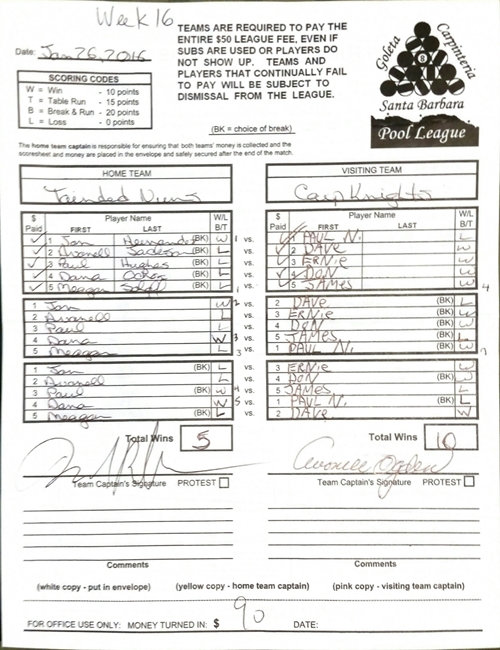 Week 16
TEAMS ARE REQUIRED TO PAY THE
ENTIRE $50 LEAGUE FEE, EVEN IF
SUBS ARE USED OR PLAYERS DO
NOT SHOW UP. TEAMS AND
PLAYERS THAT CONTINUALLY FAIL
TO PAY WILL BE SUBJECT TO
DISMISSAL FROM THE LEAGUE.
Date: Jan 26, 2016
SCORING CODES
W = Win - 10 points
T = Table Run - 15 points
B = Break & Run - 20 points
L = Loss - 0 points
(BK = choice of break)
Goleta
Carpinteria
8
Santa Barbara
Pool League
The home team captain is responsible for ensuring that both teams' money is collected and the
scoresheet and money are placed in the envelope and safely secured after the end of the match.
HOME TEAM
Trinidad
$ Paid Player Name FIRST LAST W/L B/T
1 Jan Hernandez (BK) W 1 vs.
2 Avanell (BK) L vs.
3 Paul Hughes (BK) L vs.
4 Dana (BK) L vs.
5 Meagan (BK) L 1 vs.
1 Jan W 2 vs.
2 Avanell L vs.
3 Paul L vs.
4 Dana W 3 vs.
5 Meagan L 3 vs.
1 Jan (BK) L vs.
2 Avanell (BK) L vs.
3 Paul (BK) W 4 vs.
4 Dana (BK) W 5 vs.
5 Meagan (BK) L vs.
Total Wins 5
Team Captain's Signature PROTEST
Comments
VISITING TEAM
Carp Knights
$ Paid Player Name FIRST LAST W/L B/T
1 PAUL N. L
2 DAVE W
3 ERNIE W
4 DON W
5 JAMES W 4
2 DAVE (BK) L
3 ERNIE (BK) W
4 DON (BK) W
5 JAMES (BK) L
1 PAUL N. (BK) W 7
3 ERNIE W
4 DON W
5 JAMES L
1 PAUL N. L
2 DAVE W
Total Wins 10
Avonelle Ogden
Team Captain's Signature PROTEST
Comments
(white copy - put in envelope) (yellow copy - home team captain) (pink copy - visiting team captain)
FOR OFFICE USE ONLY: MONEY TURNED IN: $ 90 DATE: